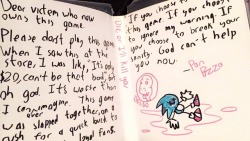 Dear victim who now
owns this game.
Please don't play this game
When I saw this at the
store, I was like, "It's only
$20, can't be that bad," but
oh god. It's worse than
I can imagine. This game
was slapped over together, on a
rush for a quick buck to
fans.
If you choose
this game. If you choose
to ignore my warning. If
you choose to break your
sanity. God can't help
you now.
- Pan
Pizza